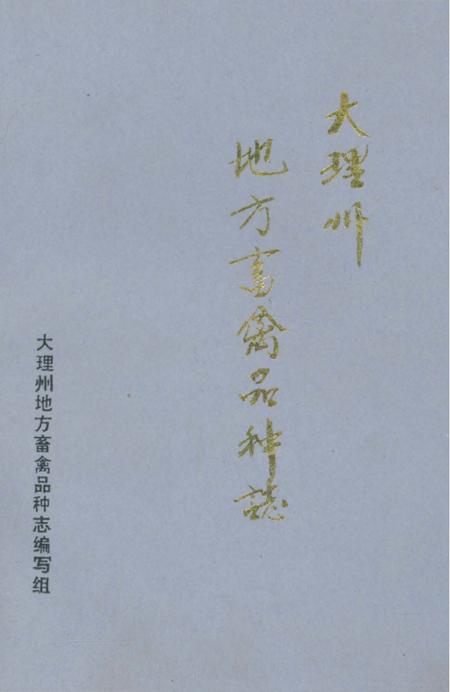 大理州
地方畜禽品种誌
大理州地方畜禽品种志编写组